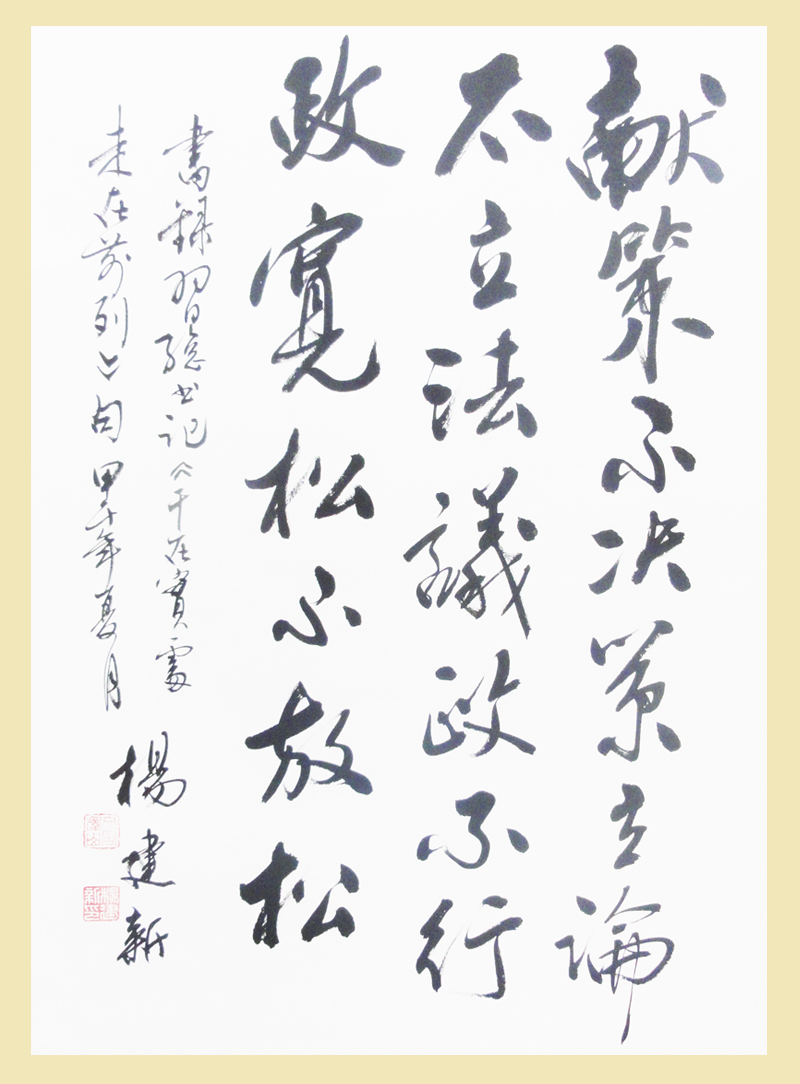 献策不决策立論
不立法議政不行
政寬松不放松
書録習總书记《干在實處
走在前列》句 甲午年夏月
楊建新